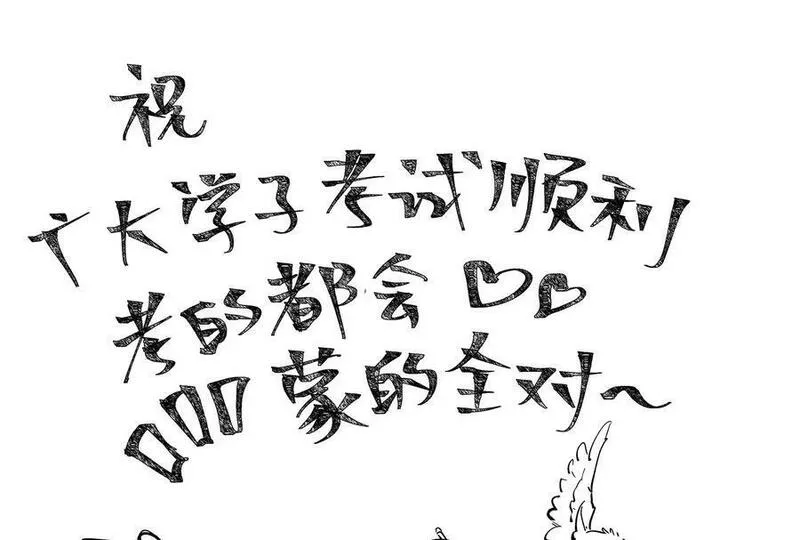 祝
广大学子考试顺利
考的都会
蒙的全对~